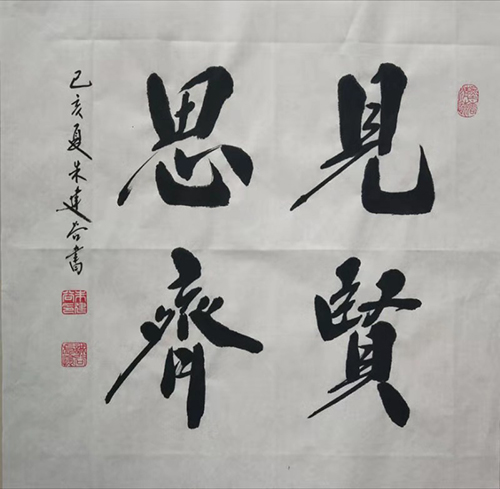 見賢
思齊
己亥夏朱建谷書